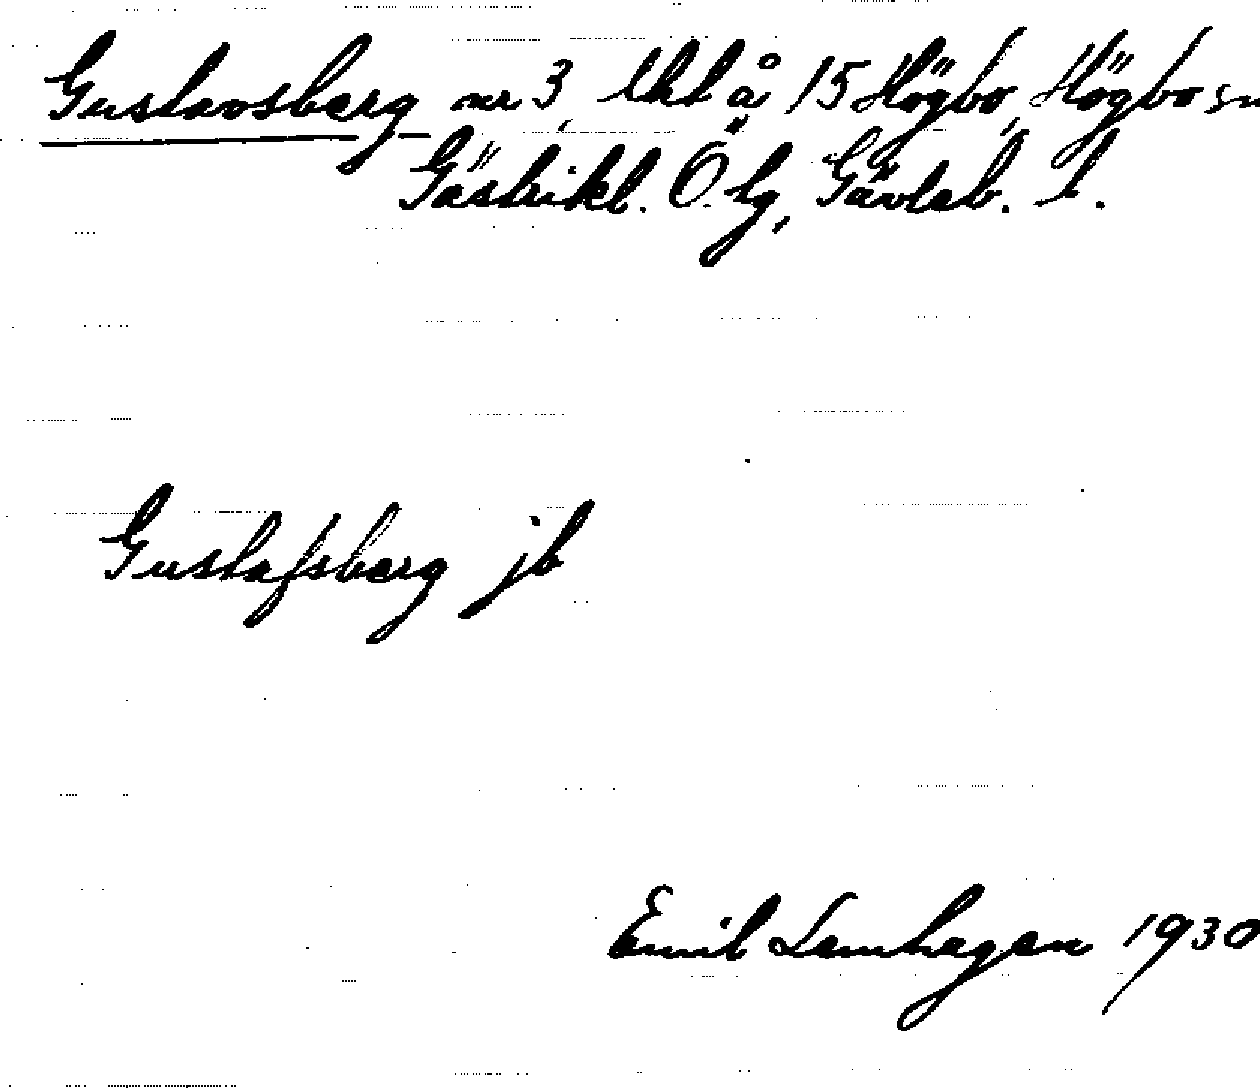 Gustavsberg nr 3, Uhl å 15 Högbo, Högbo sn
Gästrikl. Ö hg, Gävleb. l.
Gustafsberg jb
Emil Lenhagen 1930